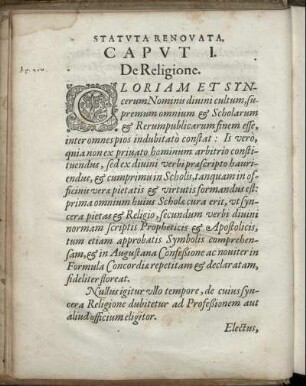 STATVTA RENOVATA.
CAPVT I.
De Religione.
GLORIAM ET SYN-
cerum Nominis divini cultum, su-
premum omnium & Scholarum
& Rerumpublicarum finem esse,
inter omnes pios indubitatò constat: Is verò,
quia non ex privato hominum arbitrio consti-
tuendus, sed ex divini verbi præscripto haurien-
dus, & cumprimis in Scholis, tanquam in of-
ficinis vera pietatis & virtutis formandus est:
prima omnium huius Scholæ cura erit, ut syn-
cera pietas & Religio, secundum verbi divini
normam scriptis Propheticis & Apostolicis,
tum etiam approbatis Symbolis comprehen-
sam, & in Augustana Confessione ac noviter in
Formula Concordiæ repetitam & declaratam,
fideliter floreat.
Nullus igitur ullo tempore, de cuius syn-
cera Religione dubitetur ad Professionem aut
aliud officium eligitor.
Electus,